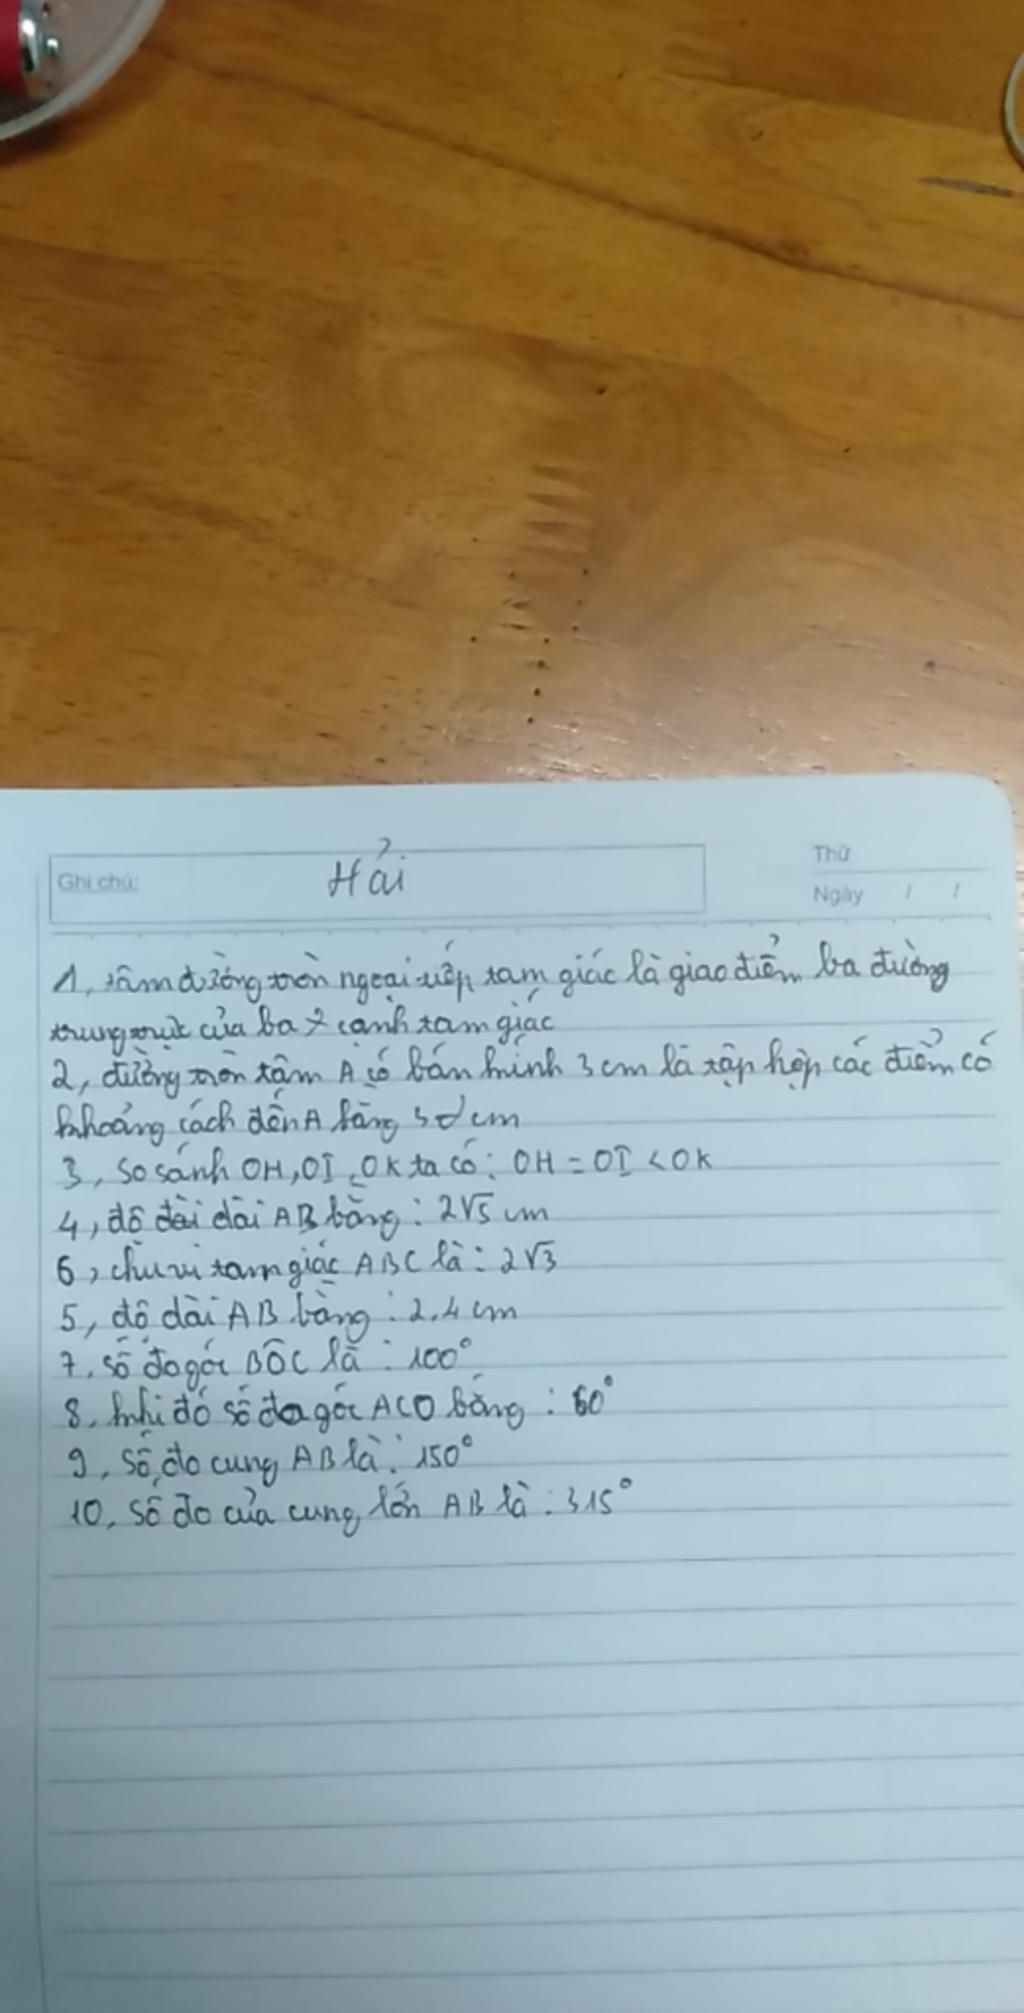 Ghi chú: Hải
Thứ
Ngày / /
1, tâm đường tròn ngoại tiếp tam giác là giao điểm ba đường
trung trực của ba cạnh tam giác
2, đường tròn tâm A có bán kính 3 cm là tập hợp các điểm có
khoảng cách đến A bằng 3 cm
3, so sánh OH, OI, OK ta có: OH = OI < OK
4, độ dài AB bằng: 2√5 cm
6, chu vi tam giác ABC là: 2√3
5, độ dài AB bằng: 2,4 cm
7, số đo góc BOC là: 100°
8, khi đó số đo góc ACO bằng: 60°
9, số đo cung AB là: 150°
10, số đo của cung lớn AB là: 315°